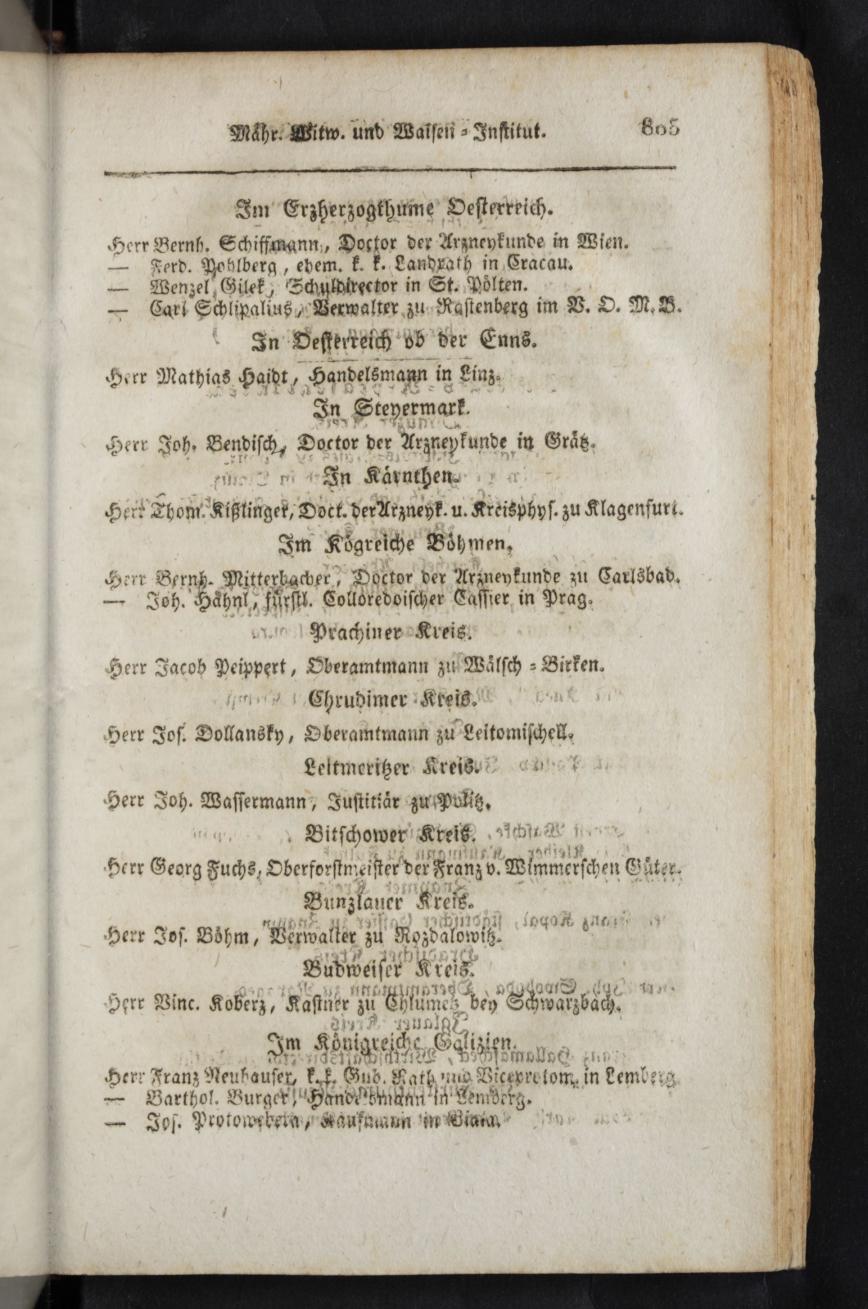 Mähr. Witw. und Waisen-Institut. 805
Im Erzherzogthume Oesterreich.
Herr Bernh. Schiffmann, Doctor der Arzneykunde in Wien.
— Ferd. Pohlberg, ehem. k. k. Landrath in Cracau.
— Wenzel Gilek, Schuldirector in St. Pölten.
— Carl Schlipalius, Verwalter zu Rastenberg im V. O. M. B.
In Oesterreich ob der Enns.
Herr Mathias Haidt, Handelsmann in Linz.
In Steyermark.
Herr Joh. Bendisch, Doctor der Arzneykunde in Grätz.
In Kärnthen.
Herr Thom. Kißlinger, Doct. der Arzneyk. u. Kreisphys. zu Klagenfurt.
Im Kögreiche Böhmen.
Herr Bernh. Mitterbacher, Doctor der Arzneykunde zu Carlsbad.
— Joh. Hähnl, fürstl. Colloredoischer Cassier in Prag.
Prachiner Kreis.
Herr Jacob Peippert, Oberamtmann zu Wälsch-Birken.
Chrudimer Kreis.
Herr Jos. Dollansky, Oberamtmann zu Leitomischell.
Leitmeritzer Kreis.
Herr Joh. Wassermann, Justitiär zu Politz.
Bitschower Kreis.
Herr Georg Fuchs, Oberforstmeister der Franz v. Wimmerschen Güter.
Bunzlauer Kreis.
Herr Jos. Böhm, Verwalter zu Rozdalowitz.
Budweiser Kreis.
Herr Vinc. Koberz, Kastner zu Chlumetz bey Schwarzbach.
Im Königreiche Galizien.
Herr Franz Neuhauser, k. k. Gub. Rath und in Lemberg
— Barthol. Burger, Handelsmann in Lemberg.
— Jos. Kaufmann in